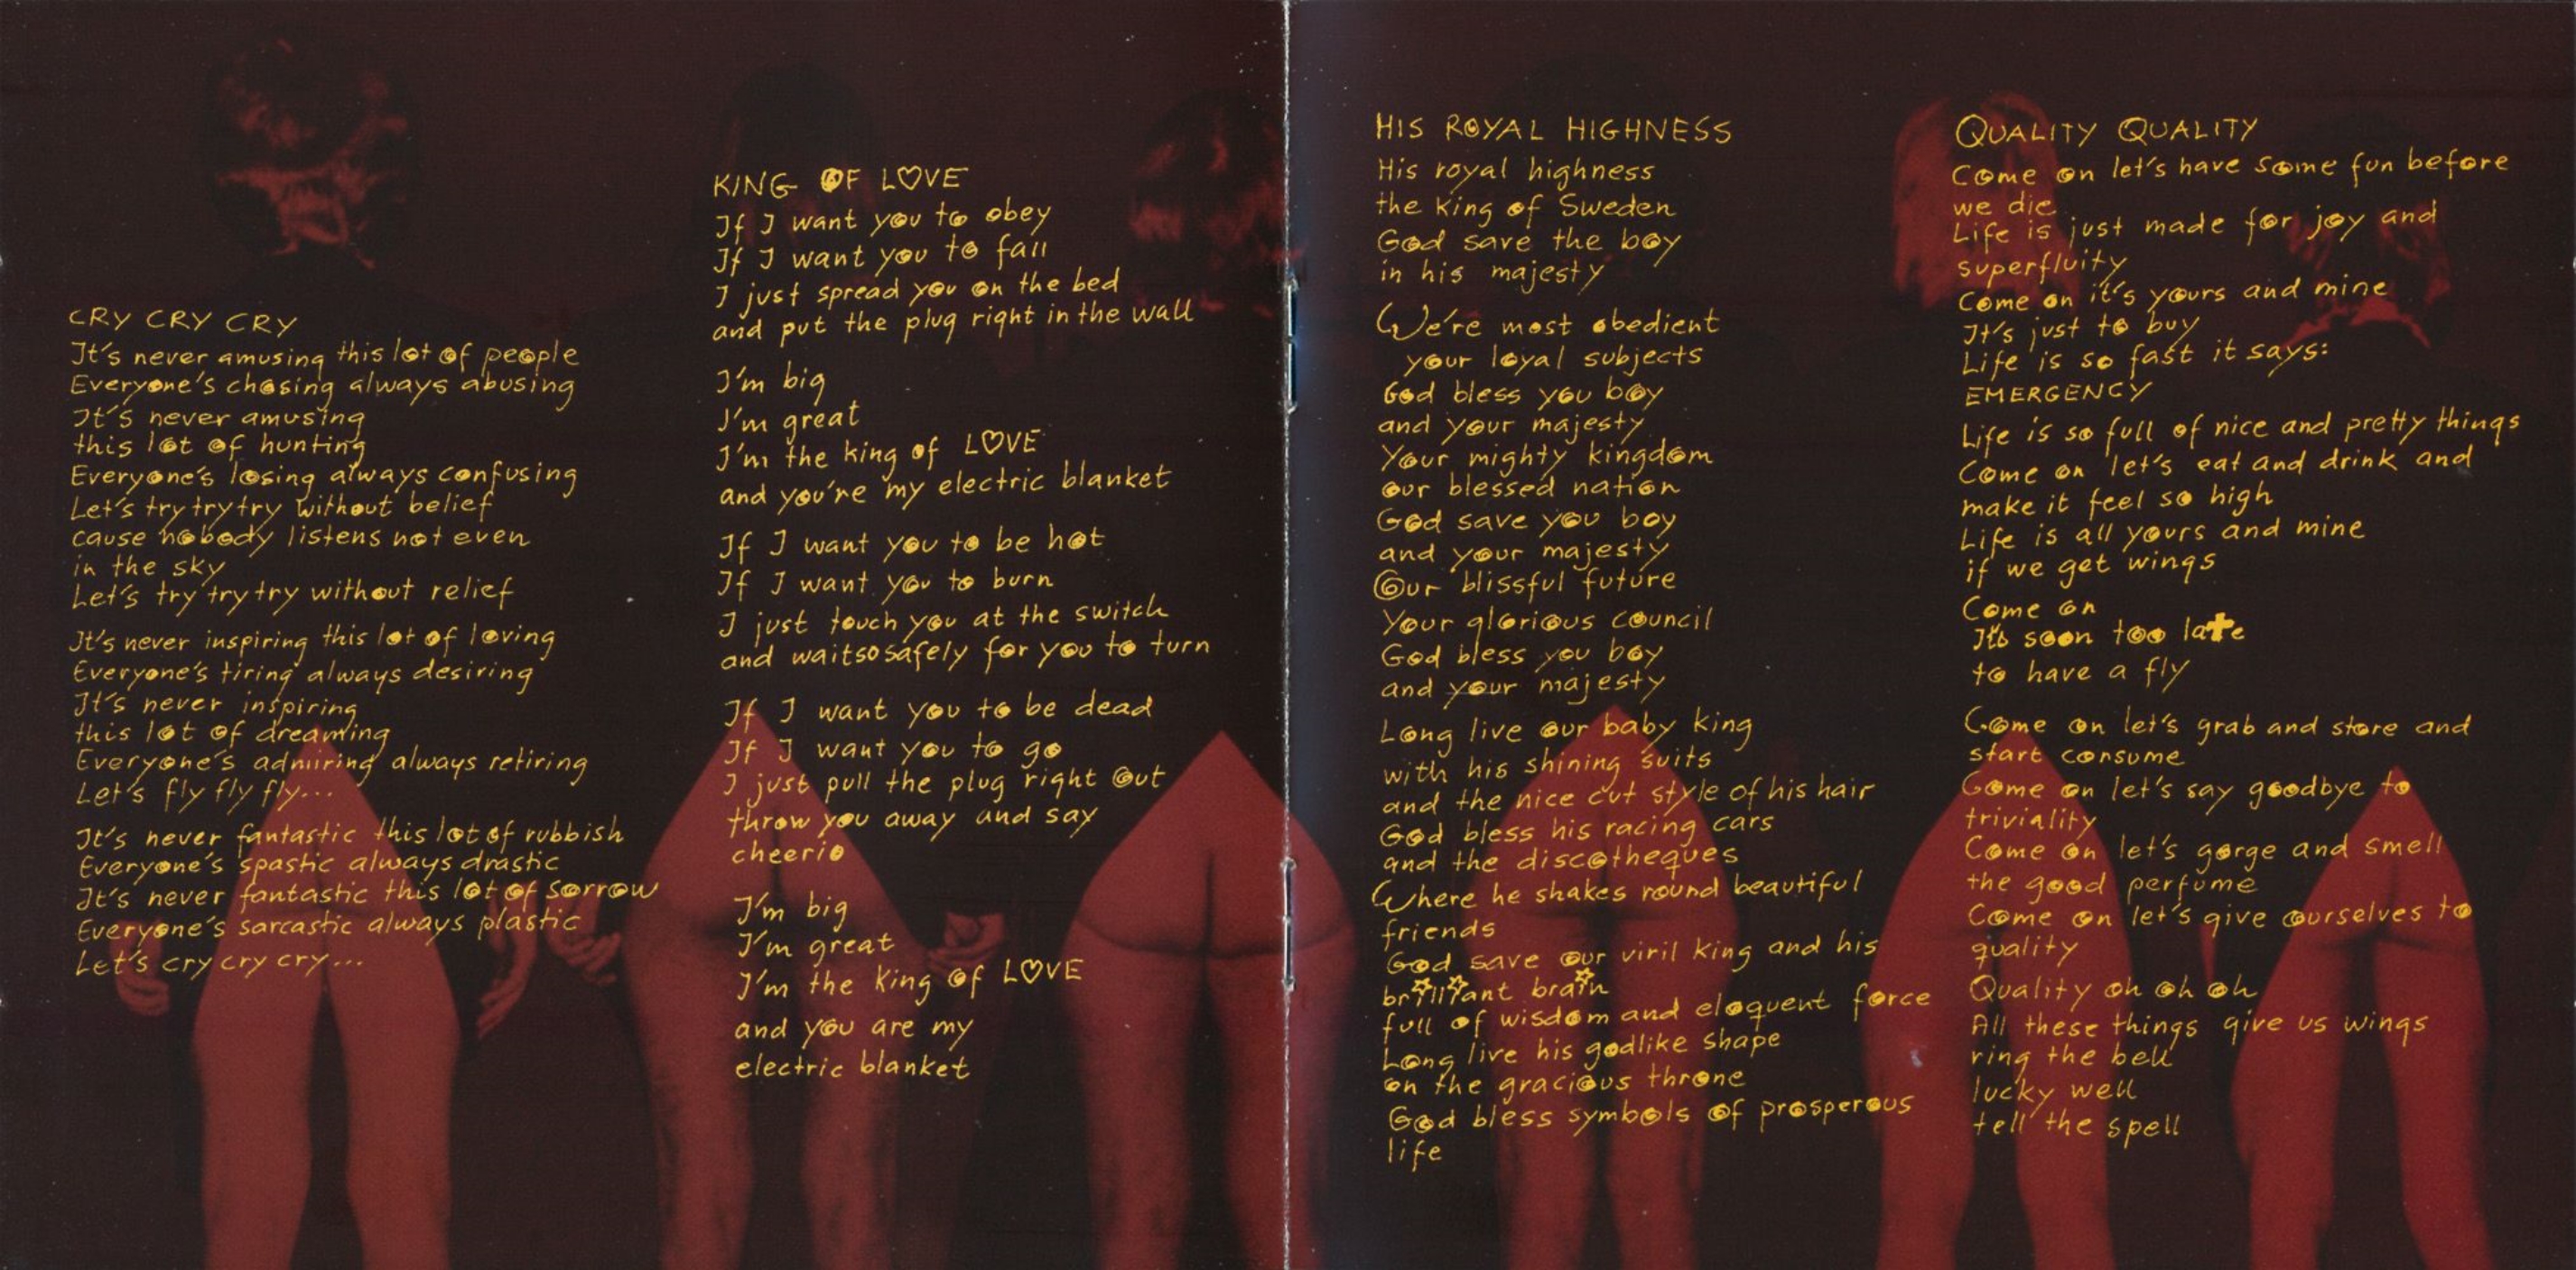 CRY CRY CRY
It's never amusing this lot of people
Everyone's chasing always abusing
It's never amusing
this lot of hunting
Everyone's losing always confusing
Let's try try try without belief
cause nobody listens not even
in the sky
Let's try try try without relief
It's never inspiring this lot of loving
Everyone's tiring always desiring
It's never inspiring
this lot of dreaming
Everyone's admiring always retiring
Let's fly fly fly...
It's never fantastic this lot of rubbish
Everyone's spastic always drastic
It's never fantastic this lot of sorrow
Everyone's sarcastic always plastic
Let's cry cry cry...
KING OF L♡VE
If I want you to obey
If I want you to fall
I just spread you on the bed
and put the plug right in the wall
I'm big
I'm great
I'm the king of L♡VE
and you're my electric blanket
If I want you to be hot
If I want you to burn
I just touch you at the switch
and wait so safely for you to turn
If I want you to be dead
If I want you to go
I just pull the plug right out
throw you away and say
cheerio
I'm big
I'm great
I'm the King of L♡VE
and you are my
electric blanket
HIS ROYAL HIGHNESS
His royal highness
the King of Sweden
God save the boy
in his majesty
We're most obedient
your loyal subjects
God bless you boy
and your majesty
Your mighty kingdom
our blessed nation
God save you boy
and your majesty
Our blissful future
Your glorious council
God bless you boy
and your majesty
Long live our baby king
with his shining suits
and the nice cut style of his hair
God bless his racing cars
and the discotheques
Where he shakes round beautiful
friends
God save our viril king and his
brilliant brain
full of wisdom and eloquent force
Long live his godlike shape
on the gracious throne
God bless symbols of prosperous
life
QUALITY QUALITY
Come on let's have some fun before
we die
Life is just made for joy and
superfluity
Come on it's yours and mine
It's just to buy
Life is so fast it says:
EMERGENCY
Life is so full of nice and pretty things
Come on let's eat and drink and
make it feel so high
Life is all yours and mine
if we get wings
Come on
It's soon too late
to have a fly
Come on let's grab and store and
start consume
Come on let's say goodbye to
triviality
Come on let's gorge and smell
the good perfume
Come on let's give ourselves to
quality
Quality oh oh oh
All these things give us wings
ring the bell
lucky well
tell the spell